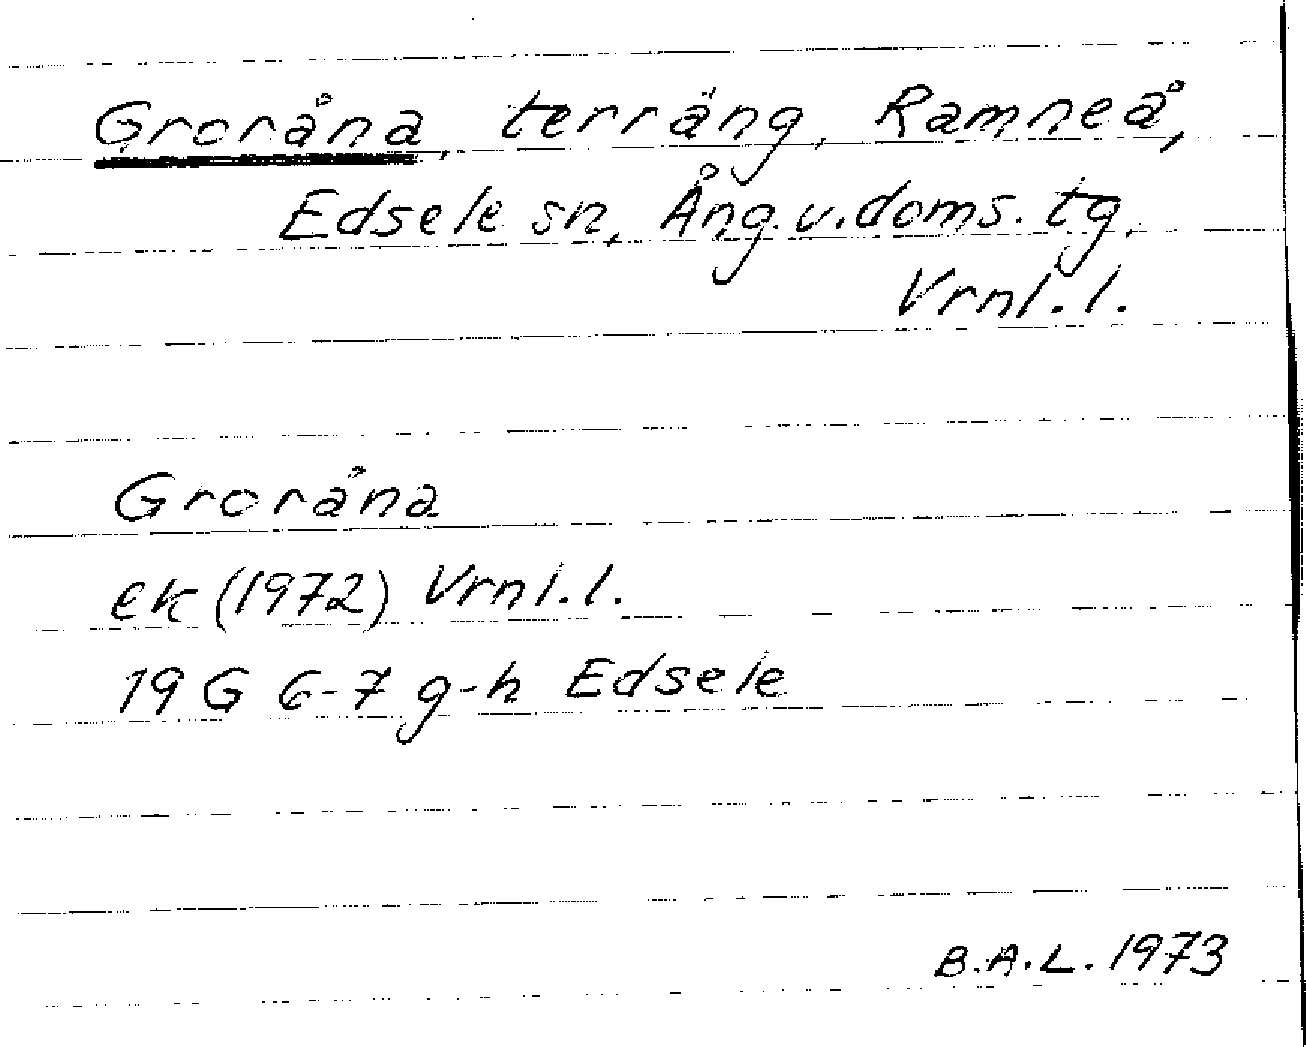 Groråna, terräng, Ramneå,
Edsele sn, Ång.v.doms.tg,
Vrnl.l.
Groråna
ek (1972) Vrnl.l.
19 G 6-7 g-h Edsele
B.A.L. 1973